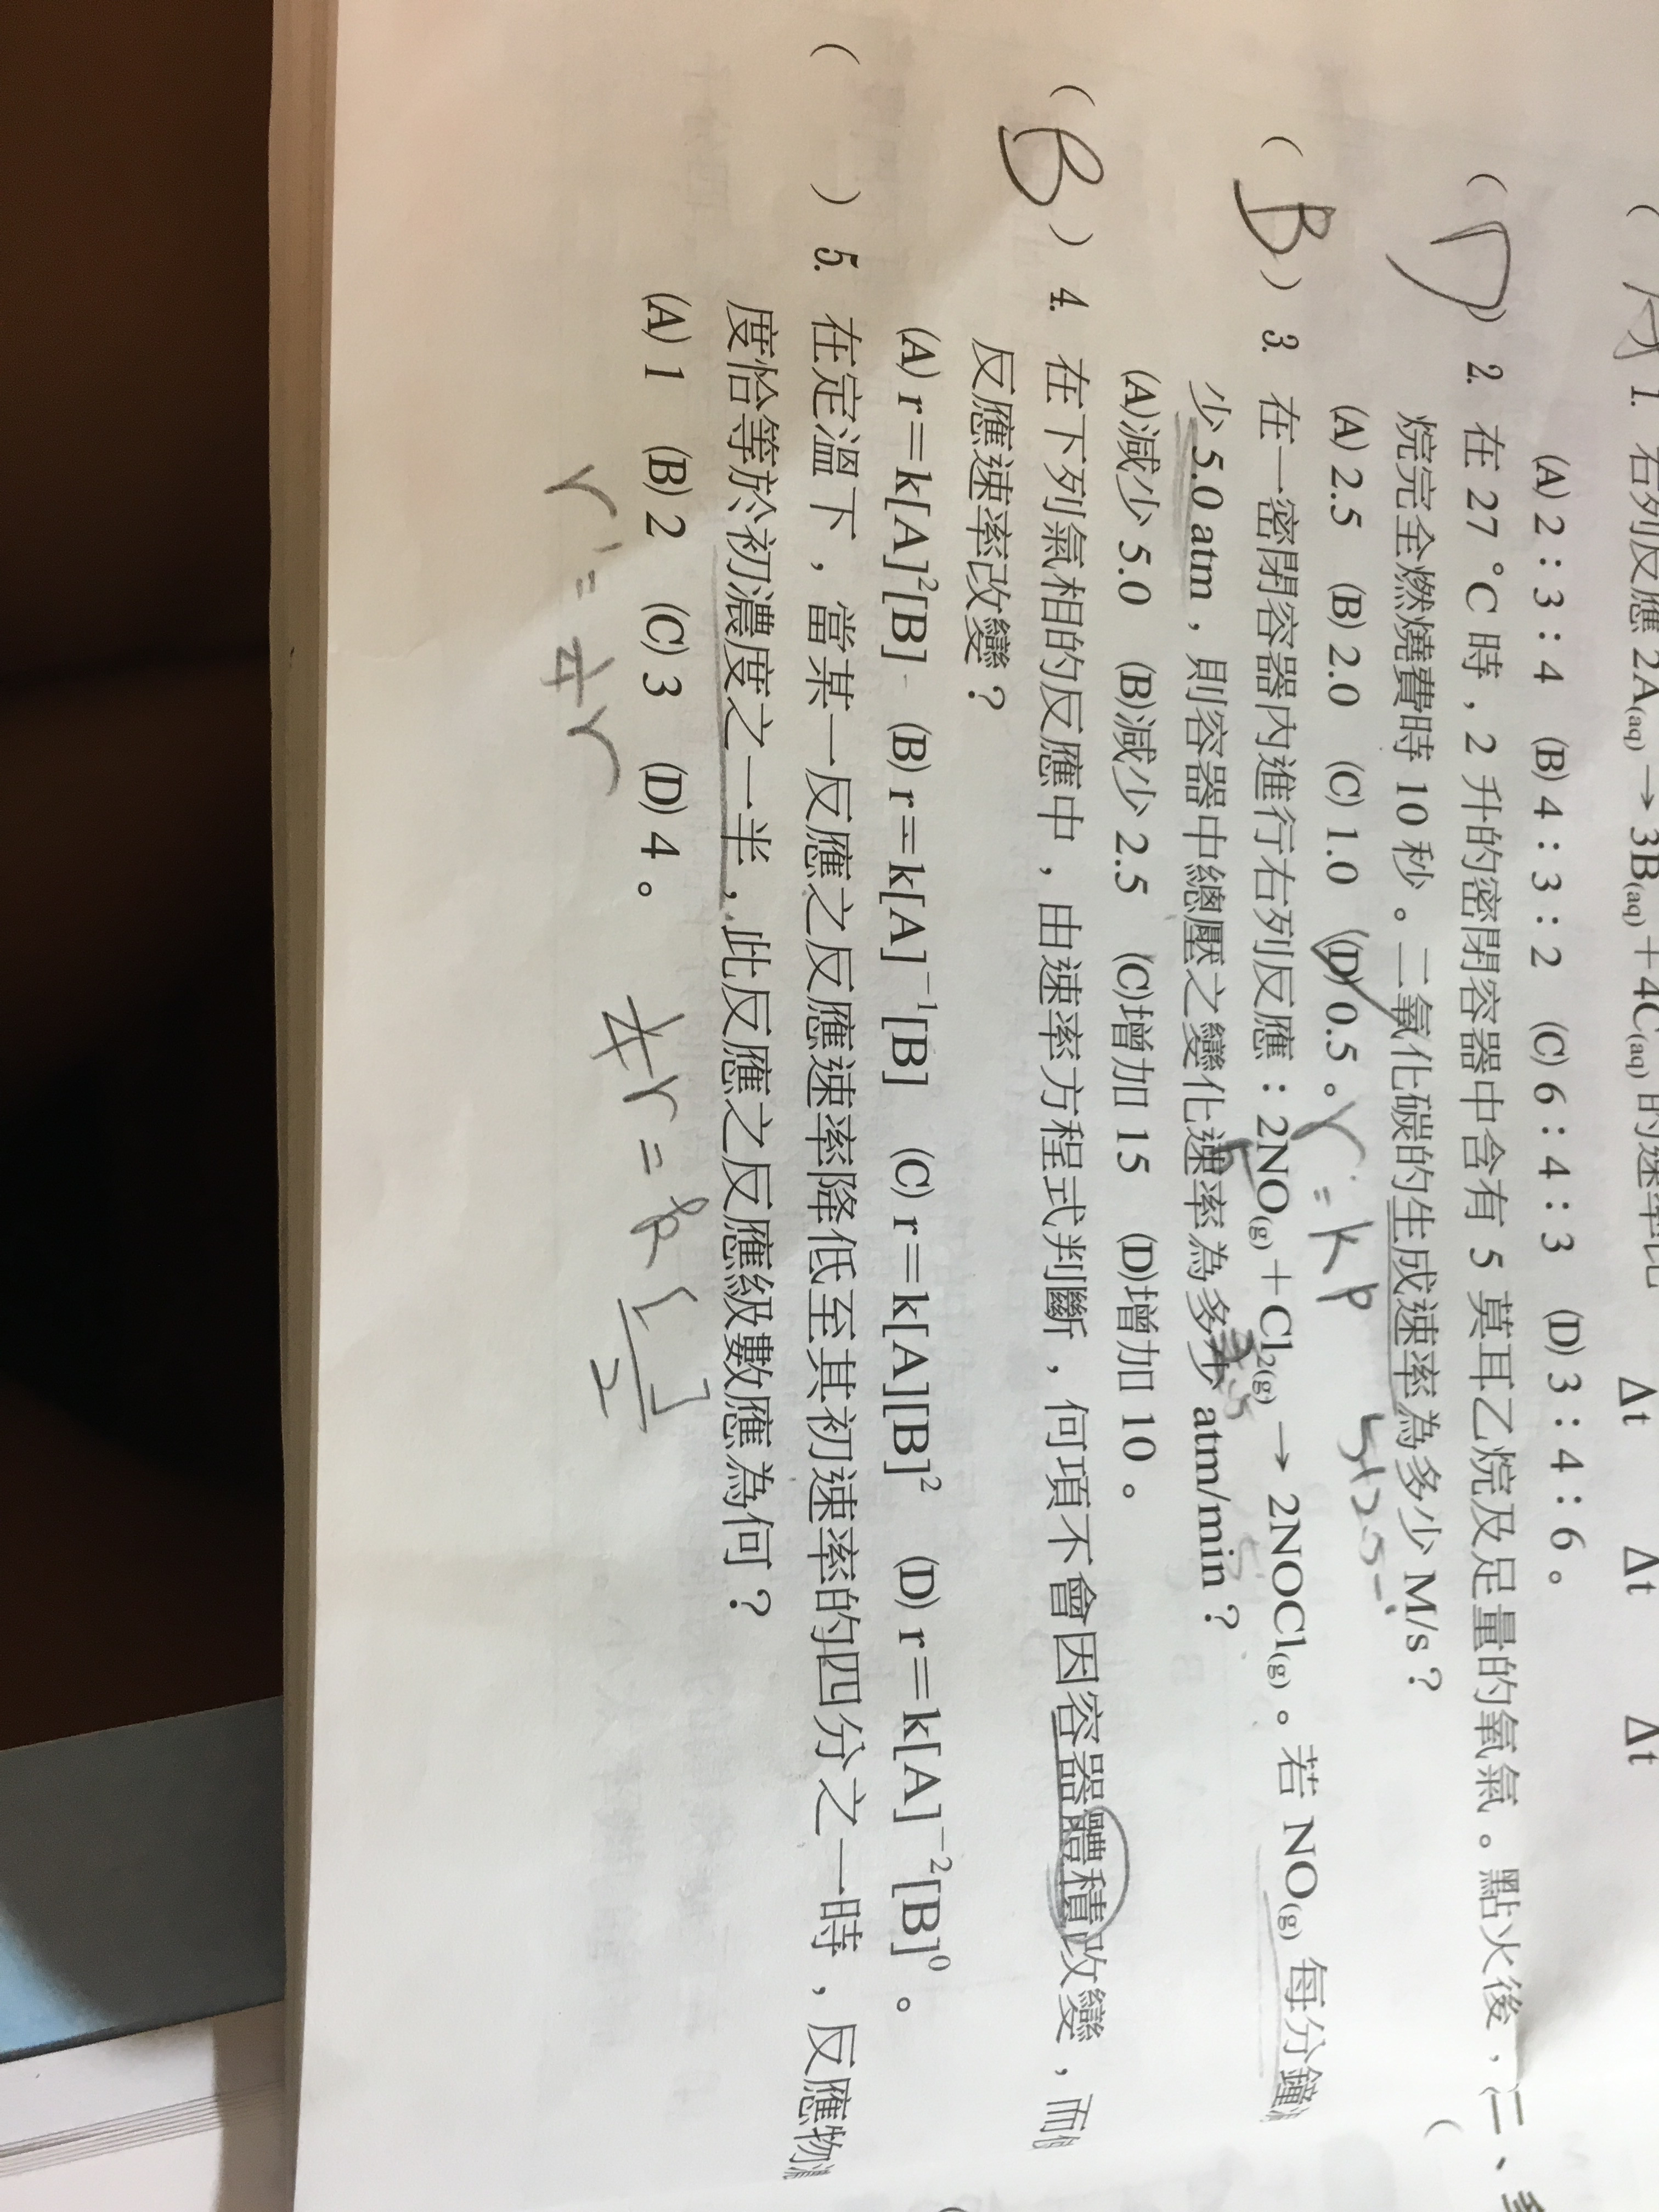 1. 右列反應 2A(aq) → 3B(aq)+4C(aq) 的速率比
Δt Δt Δt
(A) 2:3:4 (B) 4:3:2 (C) 6:4:3 (D) 3:4:6。
(D) 2. 在 27 °C 時,2 升的密閉容器中含有 5 莫耳乙烷及足量的氧氣。點火後,
烷完全燃燒費時 10 秒。二氧化碳的生成速率為多少 M/s?
(A) 2.5 (B) 2.0 (C) 1.0 (D) 0.5。
r = k p
(B) 3. 在一密閉容器內進行右列反應:2NO(g)+Cl2(g) → 2NOCl(g)。若 NO(g) 每分鐘
少 5.0 atm,則容器中總壓之變化速率為多少 atm/min?
(A)減少 5.0 (B)減少 2.5 (C)增加 15 (D)增加 10。
(B) 4. 在下列氣相的反應中,由速率方程式判斷,何項不會因容器體積改變,而
反應速率改變?
(A) r=k[A]²[B] (B) r=k[A]⁻¹[B] (C) r=k[A][B]² (D) r=k[A]⁻²[B]⁰。
( ) 5. 在定溫下,當某一反應之反應速率降低至其初速率的四分之一時,反應物
度恰等於初濃度之一半,此反應之反應級數應為何?
(A) 1 (B) 2 (C) 3 (D) 4。
r' = 1/4 r
1/4 r = k [ ]/2